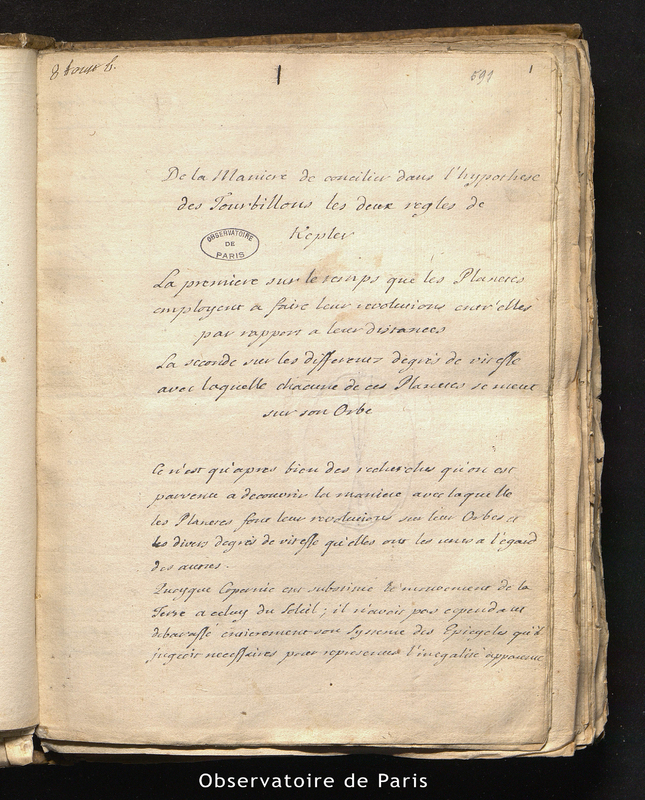 591 1
De la Maniere de concilier dans l'hypothese
des Tourbillons les deux regles de
Kepler
OBSERVATOIRE
DE
PARIS
La premiere sur le temps que les Planetes
employent a faire leur revolutions entr'elles
par rapport a leur distances
La seconde sur les differentz degrés de vitesse
avec laquelle chacune de ces Planetes se meut
sur son Orbe
Ce n'est qu'apres bien des recherches qu'on est
parvenu a decouvrir la maniere avec laquelle
les Planetes font leur revolutions sur leur Orbes et
les divers degrés de vitesse qu'elles ont les unes a l'égard
des autres.
Quoyque Copernic eut substitué le mouvement de la
Terre a celuy du Soleil; il n'avoit pas cependant
debarassé entierement son Systeme des Epicycles qu'il
jugeoit necessaires pour representer l'inegalité apparente
Observatoire de Paris